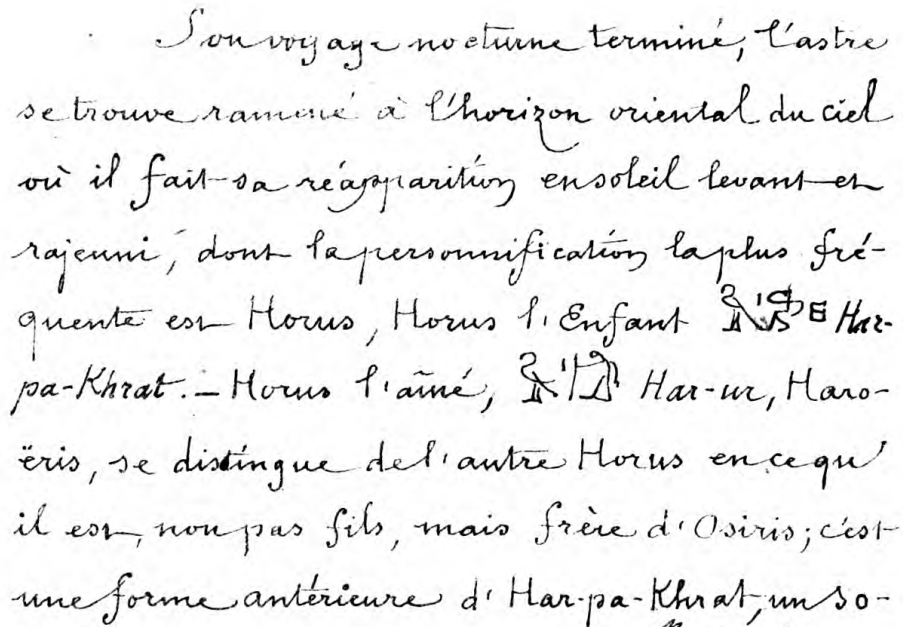 Son voyage nocturne terminé, l'astre
se trouve ramené à l'horizon oriental du ciel
où il fait sa réapparition en soleil levant et
rajeuni, dont la personnification la plus fré-
quente est Horus, Horus l'Enfant Har-
pa-Khrat. – Horus l'aîné, Har-ur, Haro-
ëris, se distingue de l'autre Horus en ce qu'
il est, non pas fils, mais frère d'Osiris; c'est
une forme antérieure d'Har-pa-Khrat, un so-